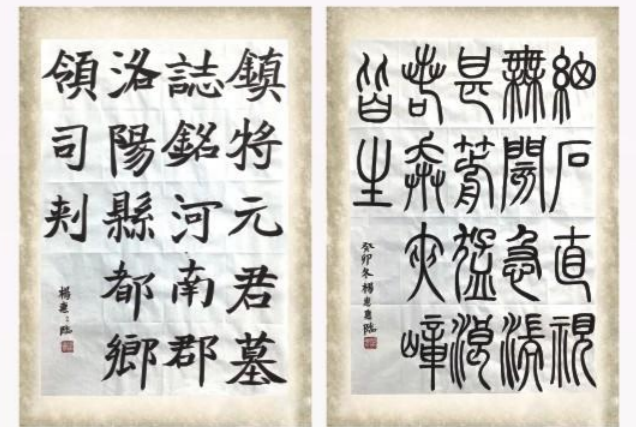 鎮將元君墓
誌銘河南郡
洛陽縣都鄉
領司刾
楊惠:臨
細石直視
無閡急湍
甚箭猛浪
若奔夾嶂
皆生
癸卯冬楊惠惠臨